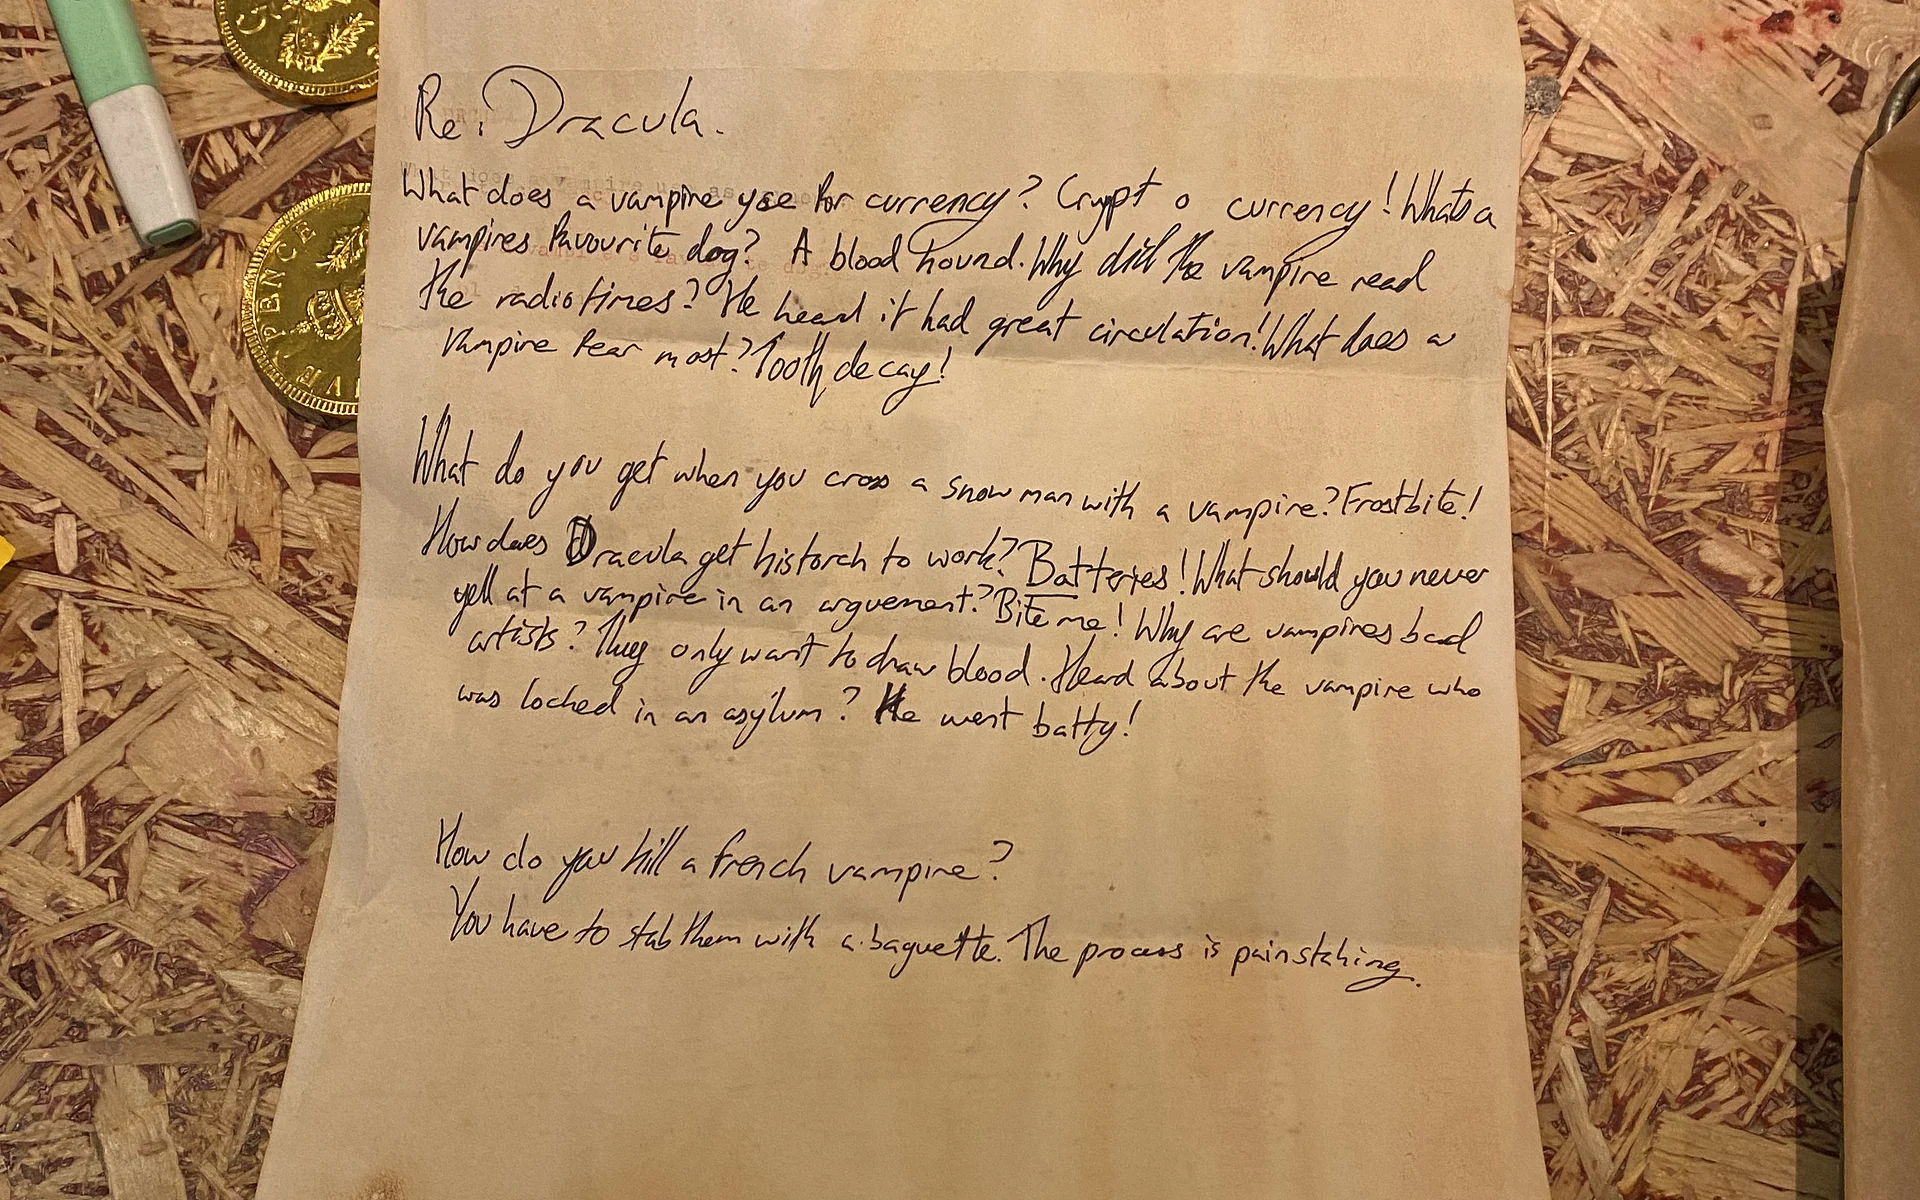 Re: Dracula.
What does a vampire use for currency? Crypt o currency! Whats a
vampires favourite dog? A blood hound. Why did the vampire read
the radio times? He heard it had great circulation! What does a
vampire fear most? Tooth decay!
What do you get when you cross a snow man with a vampire? Frostbite!
How does Dracula get his torch to work? Batteries! What should you never
yell at a vampire in an arguement? Bite me! Why are vampires bad
artists? They only want to draw blood. Heard about the vampire who
was locked in an asylum? He went batty!
How do you kill a french vampire?
You have to stab them with a baguette. The process is painstaking.
PENCE
FIVE